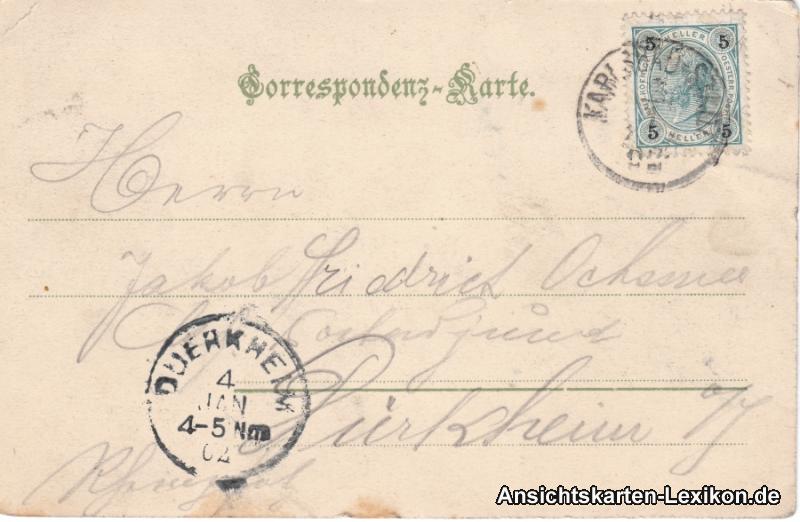 Correspondenz-Karte.
KARLSBAD
5 HELLER 5
5 HELLER 5
Herrn
Jakob Friedrich
Dürkheim a/H
DUERKHEIM
4
JAN
4-5 Nm
02
Rheinpfalz
Ansichtskarten-Lexikon.de